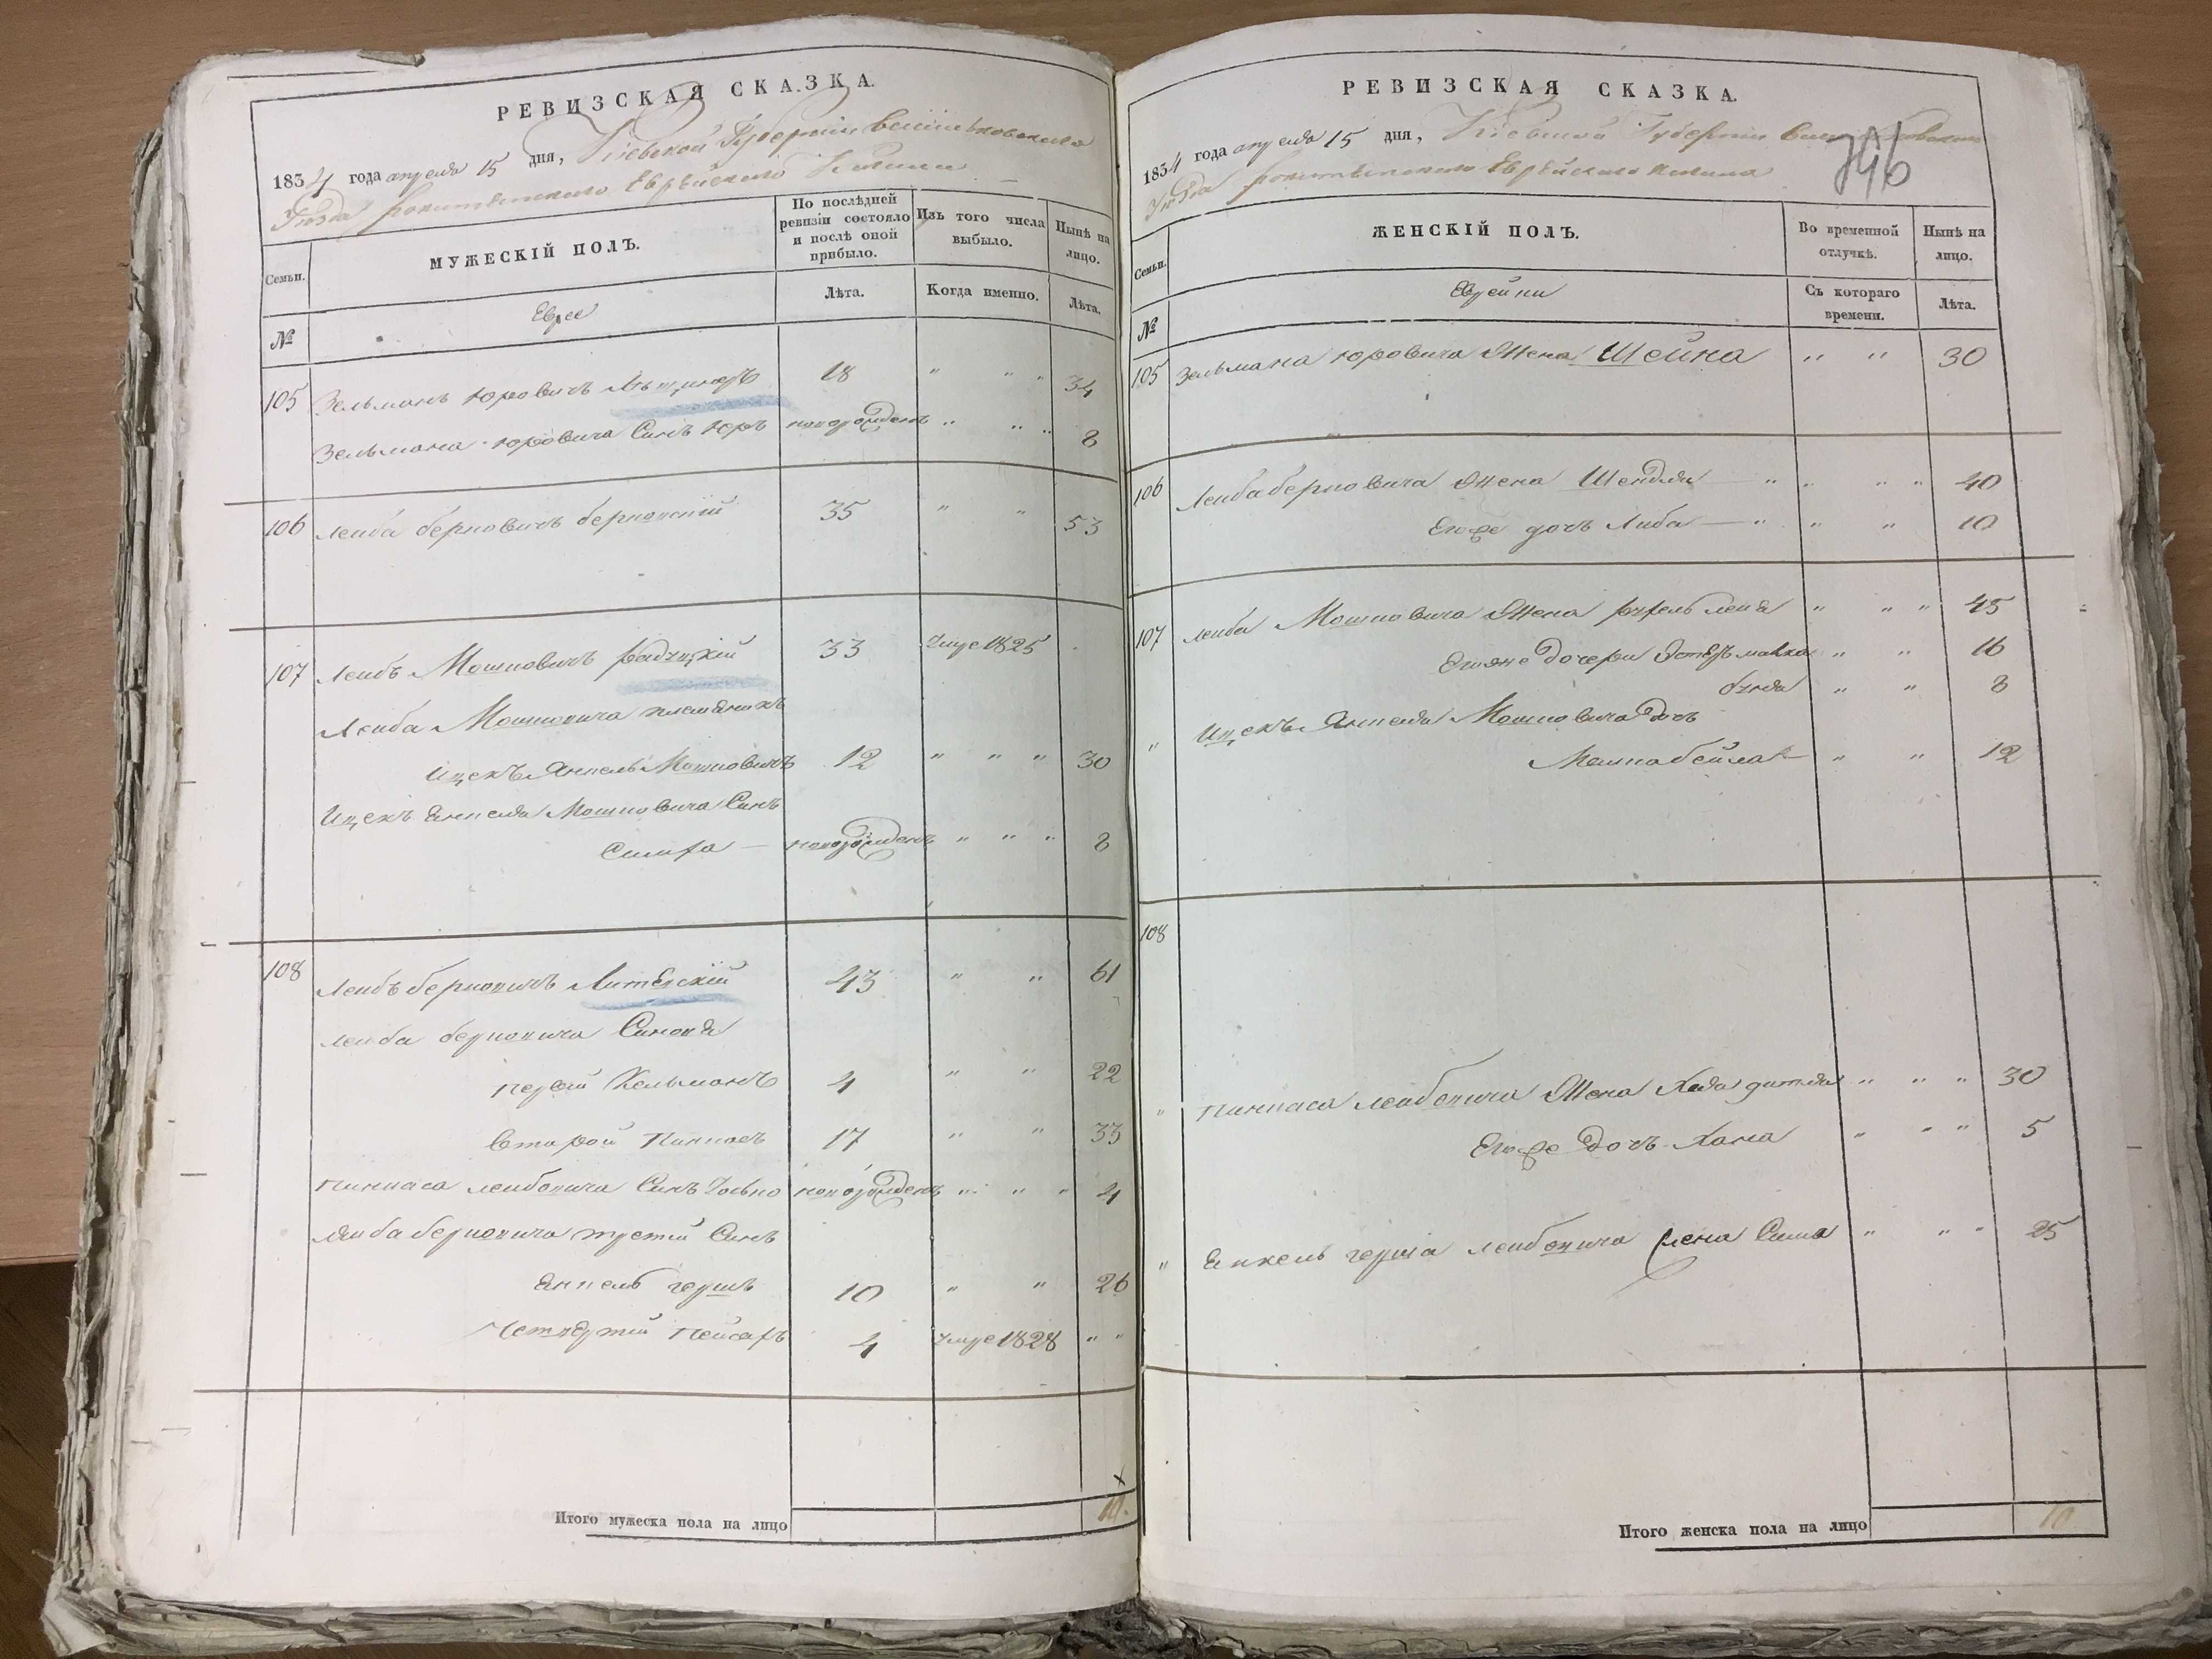 РЕВИЗСКАЯ СКАЗКА.
1834 года апреля 15 дня, Кіевской Губерніи Васильковскаго
Уѣзда рокитянского Еврѣйского Кагала
Семьи.
МУЖЕСКІЙ ПОЛЪ.
По послѣдней ревизіи состояло и послѣ оной прибыло.
Изъ того числа выбыло.
Нынѣ на лицо.
№
Евреи
Лѣта.
Когда именно.
Лѣта.
105 Зельманъ Юровичъ 18 " " " 34
Зельмана Юровича Синъ Юръ новорожденъ " " " 8
106 Лейба берковичъ берковскій 35 " " 53
107 Лейбъ Мошковичъ радзуцкій 33 умре 1825
Лейба Мошковича племяникъ
Ицекъ Янкель Мошковичъ 12 " " " 30
Ицекъ Енкеля Мошковича Синъ
Симха — новорожденъ " " " 8
108 Лейбъ берковичъ Литенскій 43 " " 61
Лейба берковича Синовя
первій Кельманъ 4 " " 22
Второй Пинкасъ 17 " " 33
Пинкаса лейбовича Синъ новорожденъ " " " 4
Лейба берковича третій Синъ
Енкель гершъ 10 " " 26
Четвертій Пейсахъ 4 умре 1828 " "
Итого мужеска пола на лицо 10.
РЕВИЗСКАЯ СКАЗКА.
1834 года апреля 15 дня, Кіевской Губерніи Васильковскаго
Уѣзда рокитянского Еврѣйского Кагала
Семьи.
ЖЕНСКІЙ ПОЛЪ.
Во временной отлучкѣ.
Нынѣ на лицо.
№
Еврейки
Съ котораго времени.
Лѣта.
105 Зельмана Юровича Жена Шейна " " 30
106 Лейба берковича Жена Шендля " " " " 40
Егоже дочъ Либа — " " " 10
107 Лейба Мошковича Жена рухель леия " " " 45
Егоже дочери Эстеръ малка " " 16
буня " " 8
" Ицекъ Янкеля Мошковича Дочъ
Мошка бейла — " " 12
108
" Пинкаса лейбовича Жена Хая дитля " " " 30
Егоже Дочъ Хана " " " 5
" Енкель герша лейбовича Жена Сима " " " 25
Итого женска пола на лицо 10